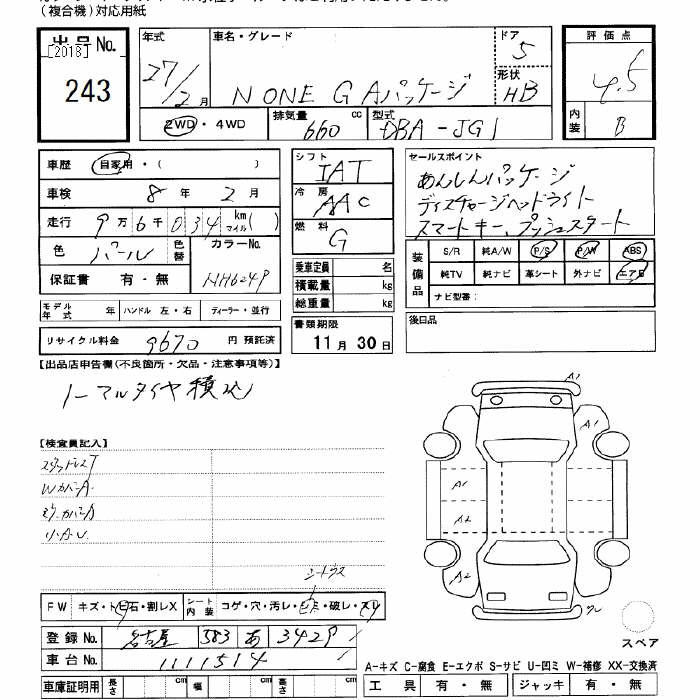 (複合機)対応用紙
出品No.
[2013]
243
年式
27/2月
車名・グレード
N ONE G Aパッケージ
ドア
5
形状
HB
評価点
4.5
内装
B
2WD・4WD
排気量
660 cc
型式
DBA-JG1
車歴 自家用・( )
車検 8年 2月
走行 9万6千034 km マイル( )
色 パール
色替
カラーNo.
NH624P
保証書 有・無
シフト
IAT
冷房
AAC
燃料
G
乗車定員 名
積載量 kg
総重量 kg
セールスポイント
あんしんパッケージ
ディスチャージヘッドライト
スマートキー、プッシュスタート
装備品
S/R 純A/W P/S P/W ABS
純TV 純ナビ 革シート 外ナビ エアB
ナビ型番:
モデル年式 年 ハンドル 左・右 ディーラー・並行
リサイクル料金 9670 円 預託済
書類期限
11月30日
後日品
【出品店申告欄(不良箇所・欠品・注意事項等)】
ノーマルタイヤ積込
【検査員記入】
スタッドレスT
WカバーA
A1
A1
A1
A2
A2
FW キズ・トビ石・割レX
シート内装 コゲ・穴・汚レ・シミ・破レ・スリ
登録No. 名古屋 583 あ 3429
車台No. 1111514
スペア
A-キズ C-腐食 E-エクボ S-サビ U-凹ミ W-補修 XX-交換済
車庫証明用 長さ cm 幅 cm 高さ cm
工具 有・無 ジャッキ 有・無